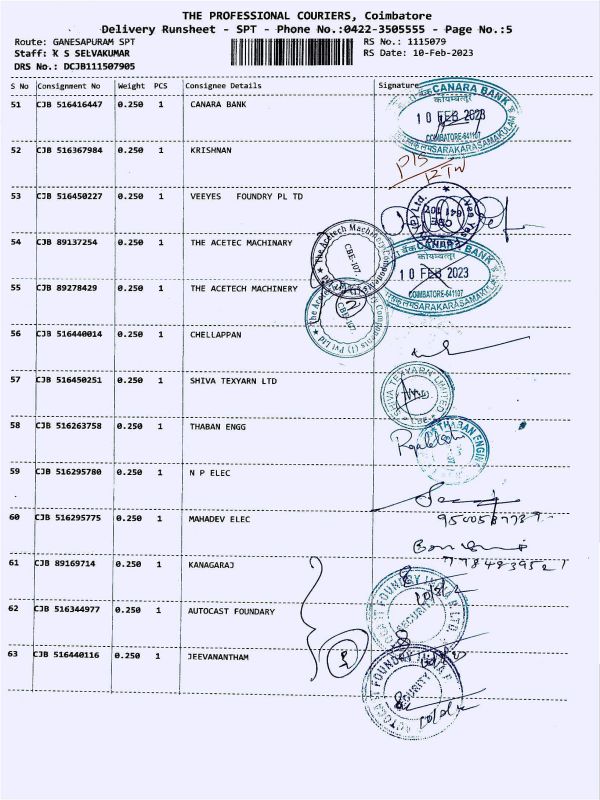 THE PROFESSIONAL COURIERS, Coimbatore
Delivery Runsheet - SPT - Phone No.:0422-3505555 - Page No.:5
Route: GANESAPURAM SPT RS No.: 1115079
Staff: K S SELVAKUMAR RS Date: 10-Feb-2023
DRS No.: DCJB111507905
S No Consignment No Weight PCS Consignee Details Signature
51 CJB 516416447 0.250 1 CANARA BANK
CANARA BANK
10 FEB 2023
COIMBATORE-641107
SARAKARASAMAKULAM
52 CJB 516367984 0.250 1 KRISHNAN
53 CJB 516450227 0.250 1 VEEYES FOUNDRY PL TD
54 CJB 89137254 0.250 1 THE ACETEC MACHINARY
The Acetech Machinery Components
CBE-107.
CANARA
10 FEB 2023
COIMBATORE-641107
55 CJB 89278429 0.250 1 THE ACETECH MACHINERY
56 CJB 516440014 0.250 1 CHELLAPPAN
57 CJB 516450251 0.250 1 SHIVA TEXYARN LTD
SHIVA TEXYARN LIMITED
CBE
58 CJB 516263758 0.250 1 THABAN ENGG
THABAN ENGINE
59 CJB 516295780 0.250 1 N P ELEC
60 CJB 516295775 0.250 1 MAHADEV ELEC
61 CJB 89169714 0.250 1 KANAGARAJ
62 CJB 516344977 0.250 1 AUTOCAST FOUNDARY
SECURITY
63 CJB 516440116 0.250 1 JEEVANANTHAM